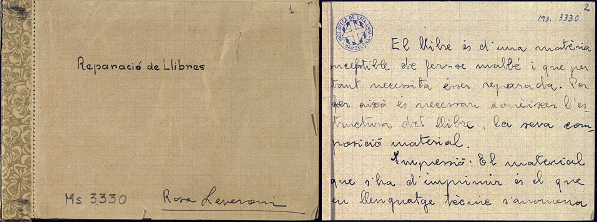 1
Reparació de Llibres
Ms 3330
Rosa Leveroni
2
Ms. 3330
El llibre és d'una matèria
sceptible de fer-se malbé i que per
tant necessita esser reparada. Per
fer això és necessari conèixer l'es
tructura del llibre, la seva com-
posició material.
Impressió: El material
que s'ha d'imprimir és el que
en llenguatge tècnic s'anomena